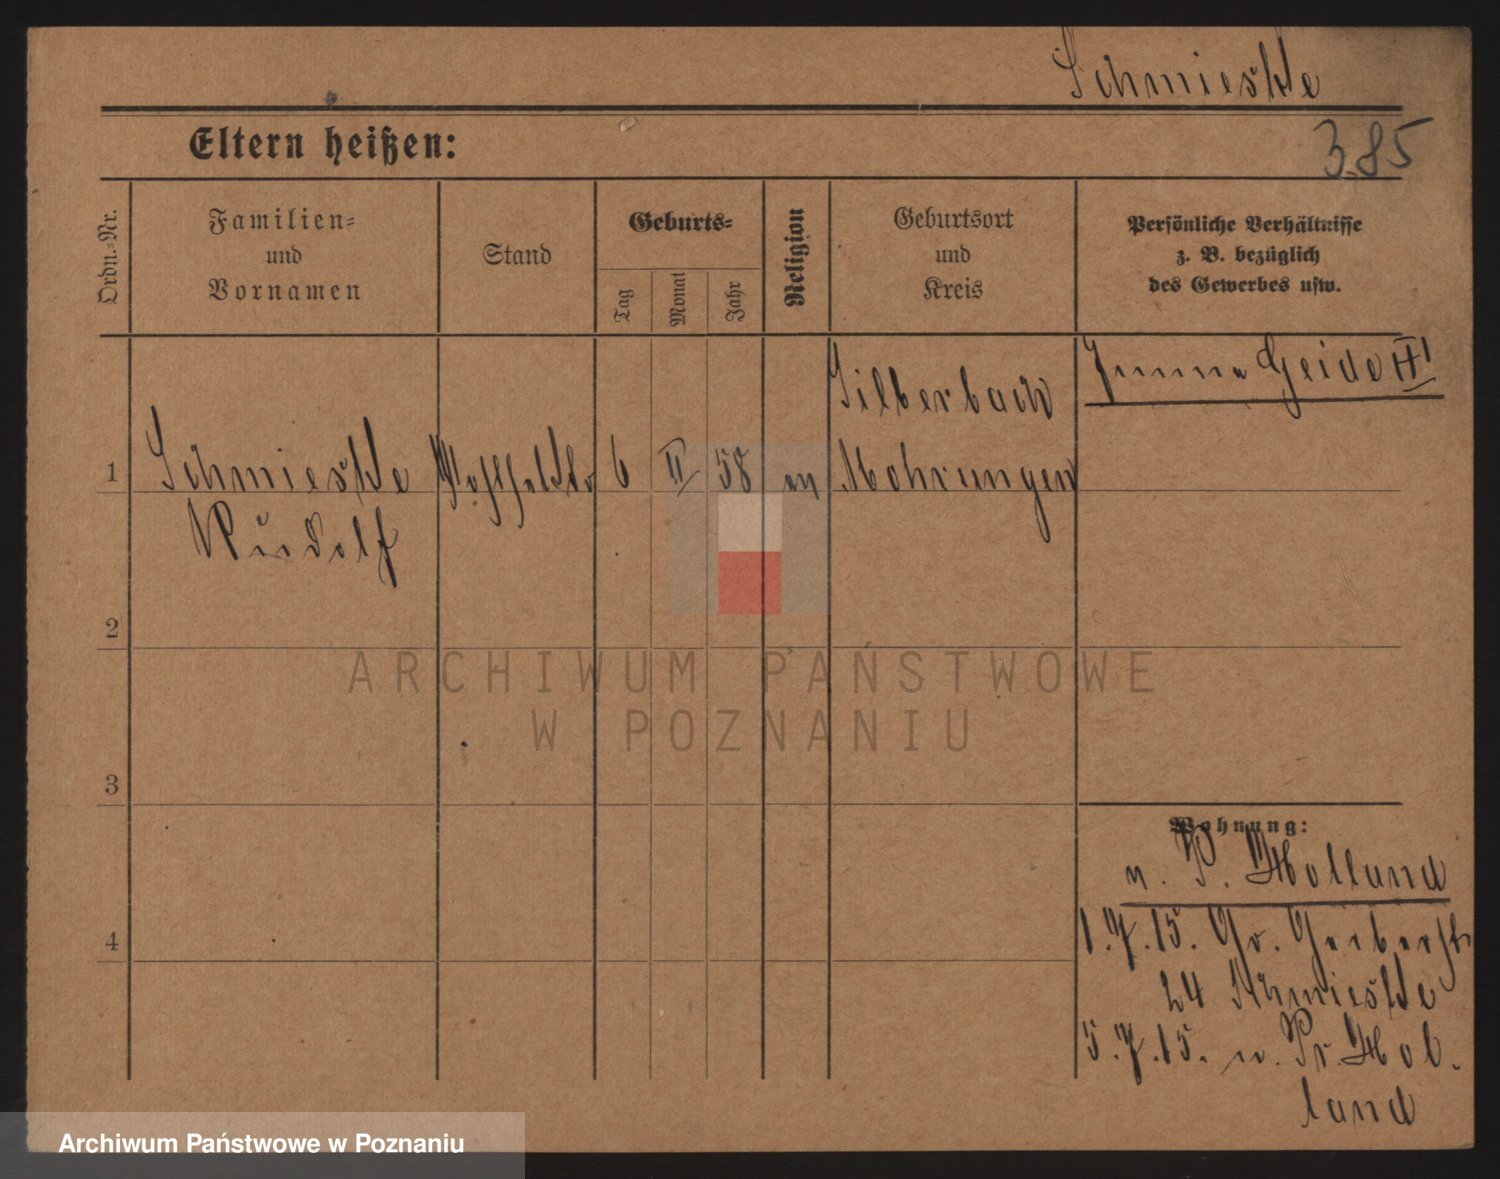 Schmieskte
Eltern heißen:
385
Ordn.-Nr.
Familien-
und
Vornamen
Stand
Geburts-
Tag
Monat
Jahr
Religion
Geburtsort
und
Kreis
Persönliche Verhältnisse
z. B. bezüglich
des Gewerbes usw.
Silberbach
1
6
II
58
Mohrungen
Rudolf
2
ARCHIWUM PAŃSTWOWE
W POZNANIU
3
Wohnung:
n. P. Holland
4
1.7.15. Gr.
24
5.7.15. n. Pr. Hol.
land
Archiwum Państwowe w Poznaniu